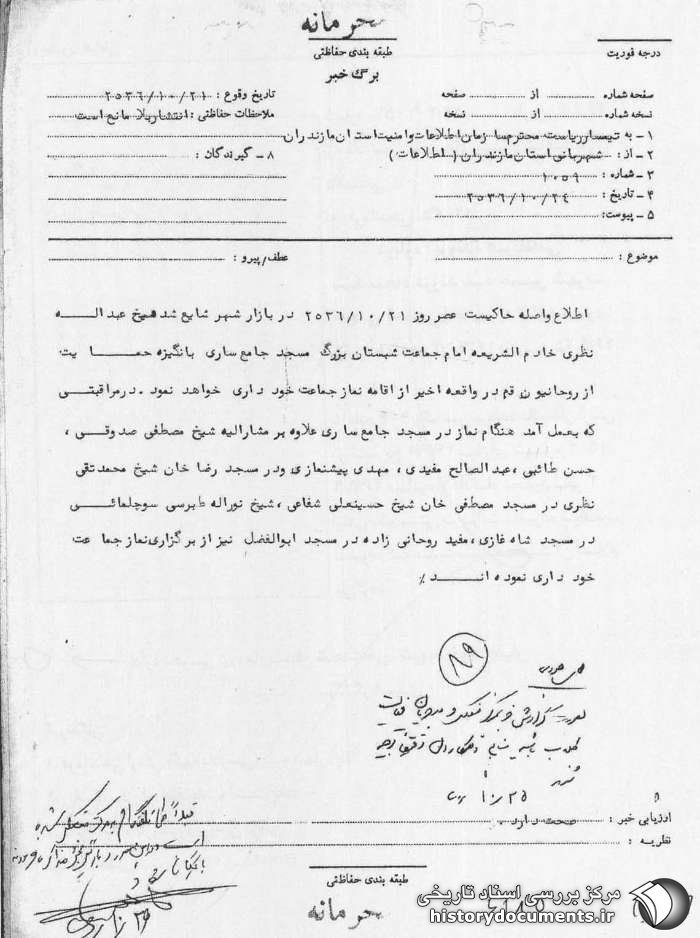 محرمانه
طبقه بندی حفاظتی
درجه فوریت
برگ خبر
صفحه شماره از صفحه
تاریخ وقوع : ۲۵۳۶/۱۰/۲۱
نسخه شماره از نسخه
ملاحظات حفاظتی : انتشار بلا مانع است
۱ - به تیمسار ریاست محترم سازمان اطلاعات وامنیت استان مازندران
۲ - از : شهربانی استان مازندران ( اطلاعات )
۸ - گیرندگان :
۳ - شماره : ۱۰۵۹
۴ - تاریخ : ۲۵۳۶/۱۰/۲٤
۵ - پیوست:
موضوع :
عطف/پیرو :
اطلاع واصله حاکیست عصر روز ۲۵۳۶/۱۰/۲۱ در بازار شهر شایع شد شیخ عبداله
نظری خادم الشریعه امام جماعت شبستان بزرگ مسجد جامع ساری بانگیزه حمایت
از روحانیون قم در واقعه اخیر از اقامه نماز جماعت خود داری خواهد نمود . درمراقبتی
که بعمل آمد هنگام نماز در مسجد جامع ساری علاوه بر مشارالیه شیخ مصطفی صدوقی ،
حسن طائبی ، عبدالصالح مفیدی ، مهدی پیشنمازی ودر مسجد رضا خان شیخ محمدتقی
نظری در مسجد مصطفی خان شیخ حسینعلی شفاعی ، شیخ نوراله طبرسی سوچلمائی
در مسجد شاه غازی ، مفید روحانی زاده در مسجد ابوالفضل نیز از برگزاری نماز جماعت
خود داری نموده اند ٪
۸۹
گزارش خبر
۱۰/۲۵
ارزیابی خبر : صحت دارد
نظریه :
قبلاً
طبقه بندی حفاظتی
محرمانه
مرکز بررسی اسناد تاریخی
historydocuments.ir